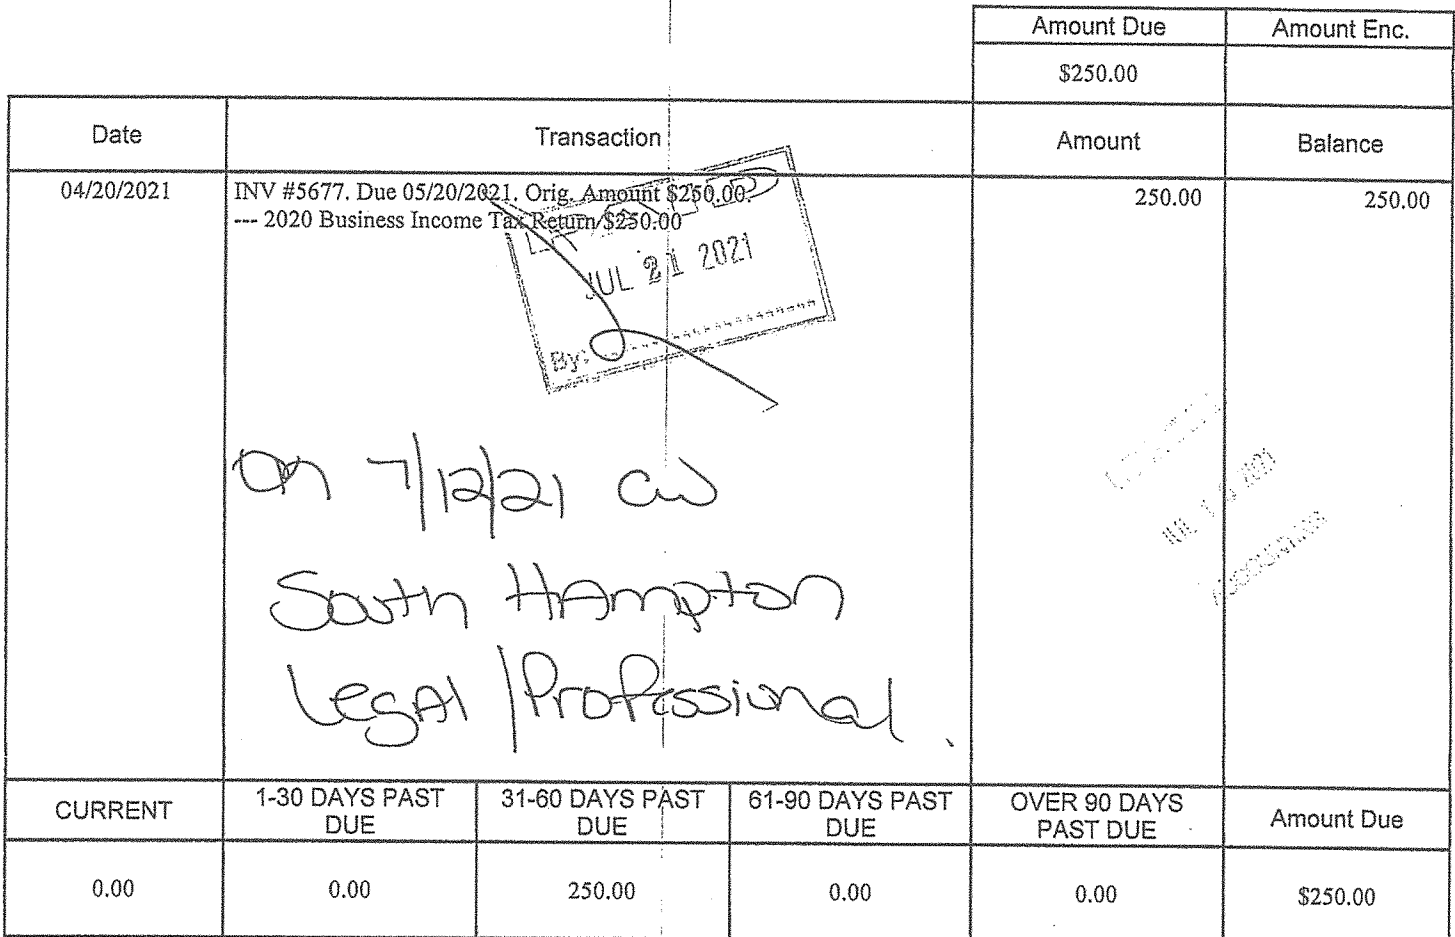 Amount Due Amount Enc.
$250.00
Date Transaction Amount Balance
04/20/2021 INV #5677. Due 05/20/2021. Orig. Amount $250.00. 250.00 250.00
--- 2020 Business Income Tax Return $250.00
JUL 21 2021
By:
7/12/21
South HAmpton
LegAl / Professional.
CURRENT 1-30 DAYS PAST DUE 31-60 DAYS PAST DUE 61-90 DAYS PAST DUE OVER 90 DAYS PAST DUE Amount Due
0.00 0.00 250.00 0.00 0.00 $250.00